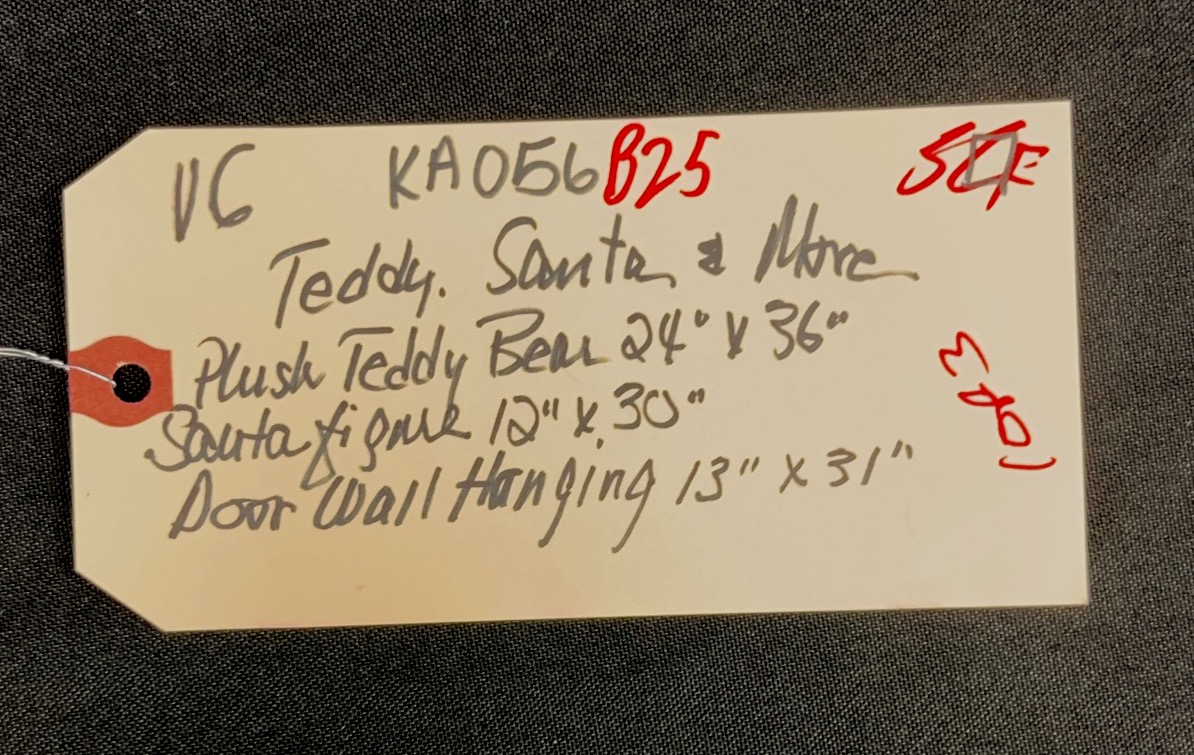 V6 KA056 B25
Teddy. Santa & More
Plush Teddy Bear 24" X 36"
Santa figure 12" X 30"
Door Wall Hanging 13" X 31"
1 OF 3